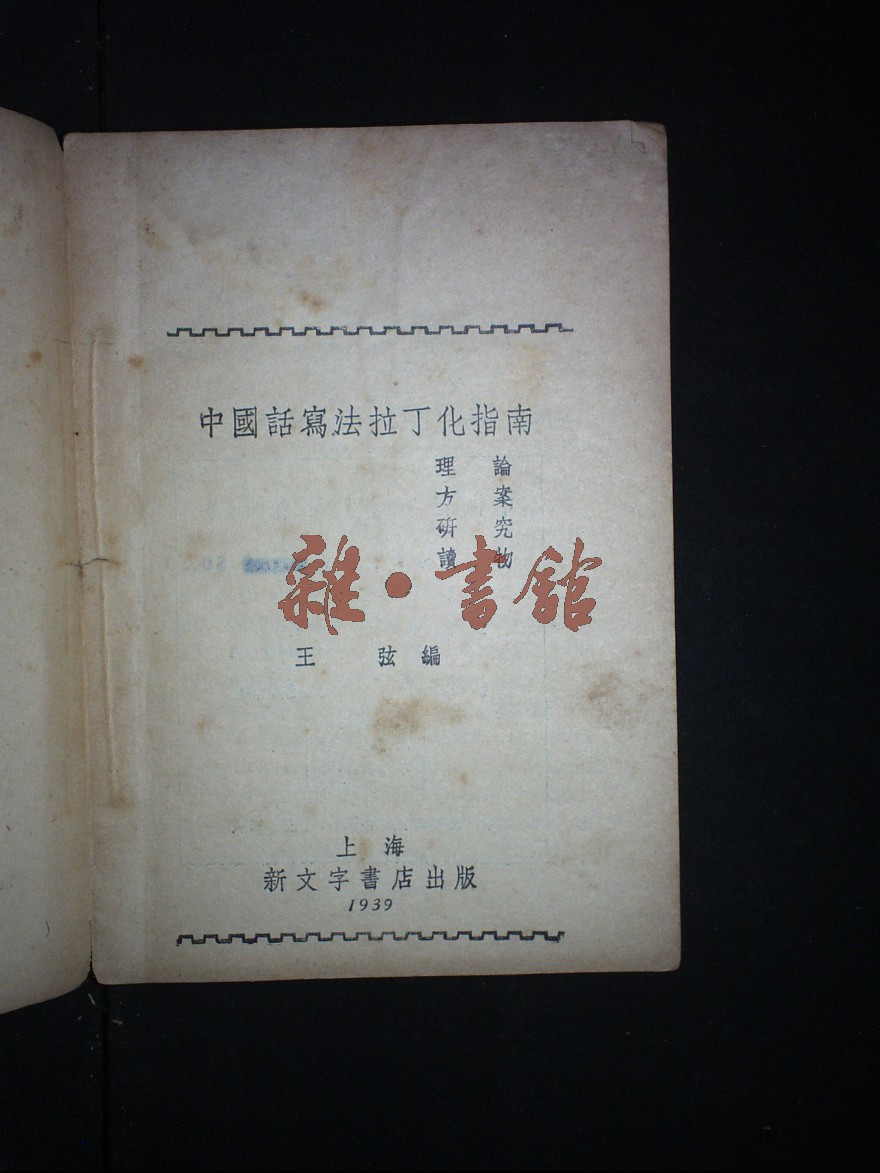 中國話寫法拉丁化指南
理論
方案
研究
讀物
雜·書館
王弦編
上海
新文字書店出版
1939